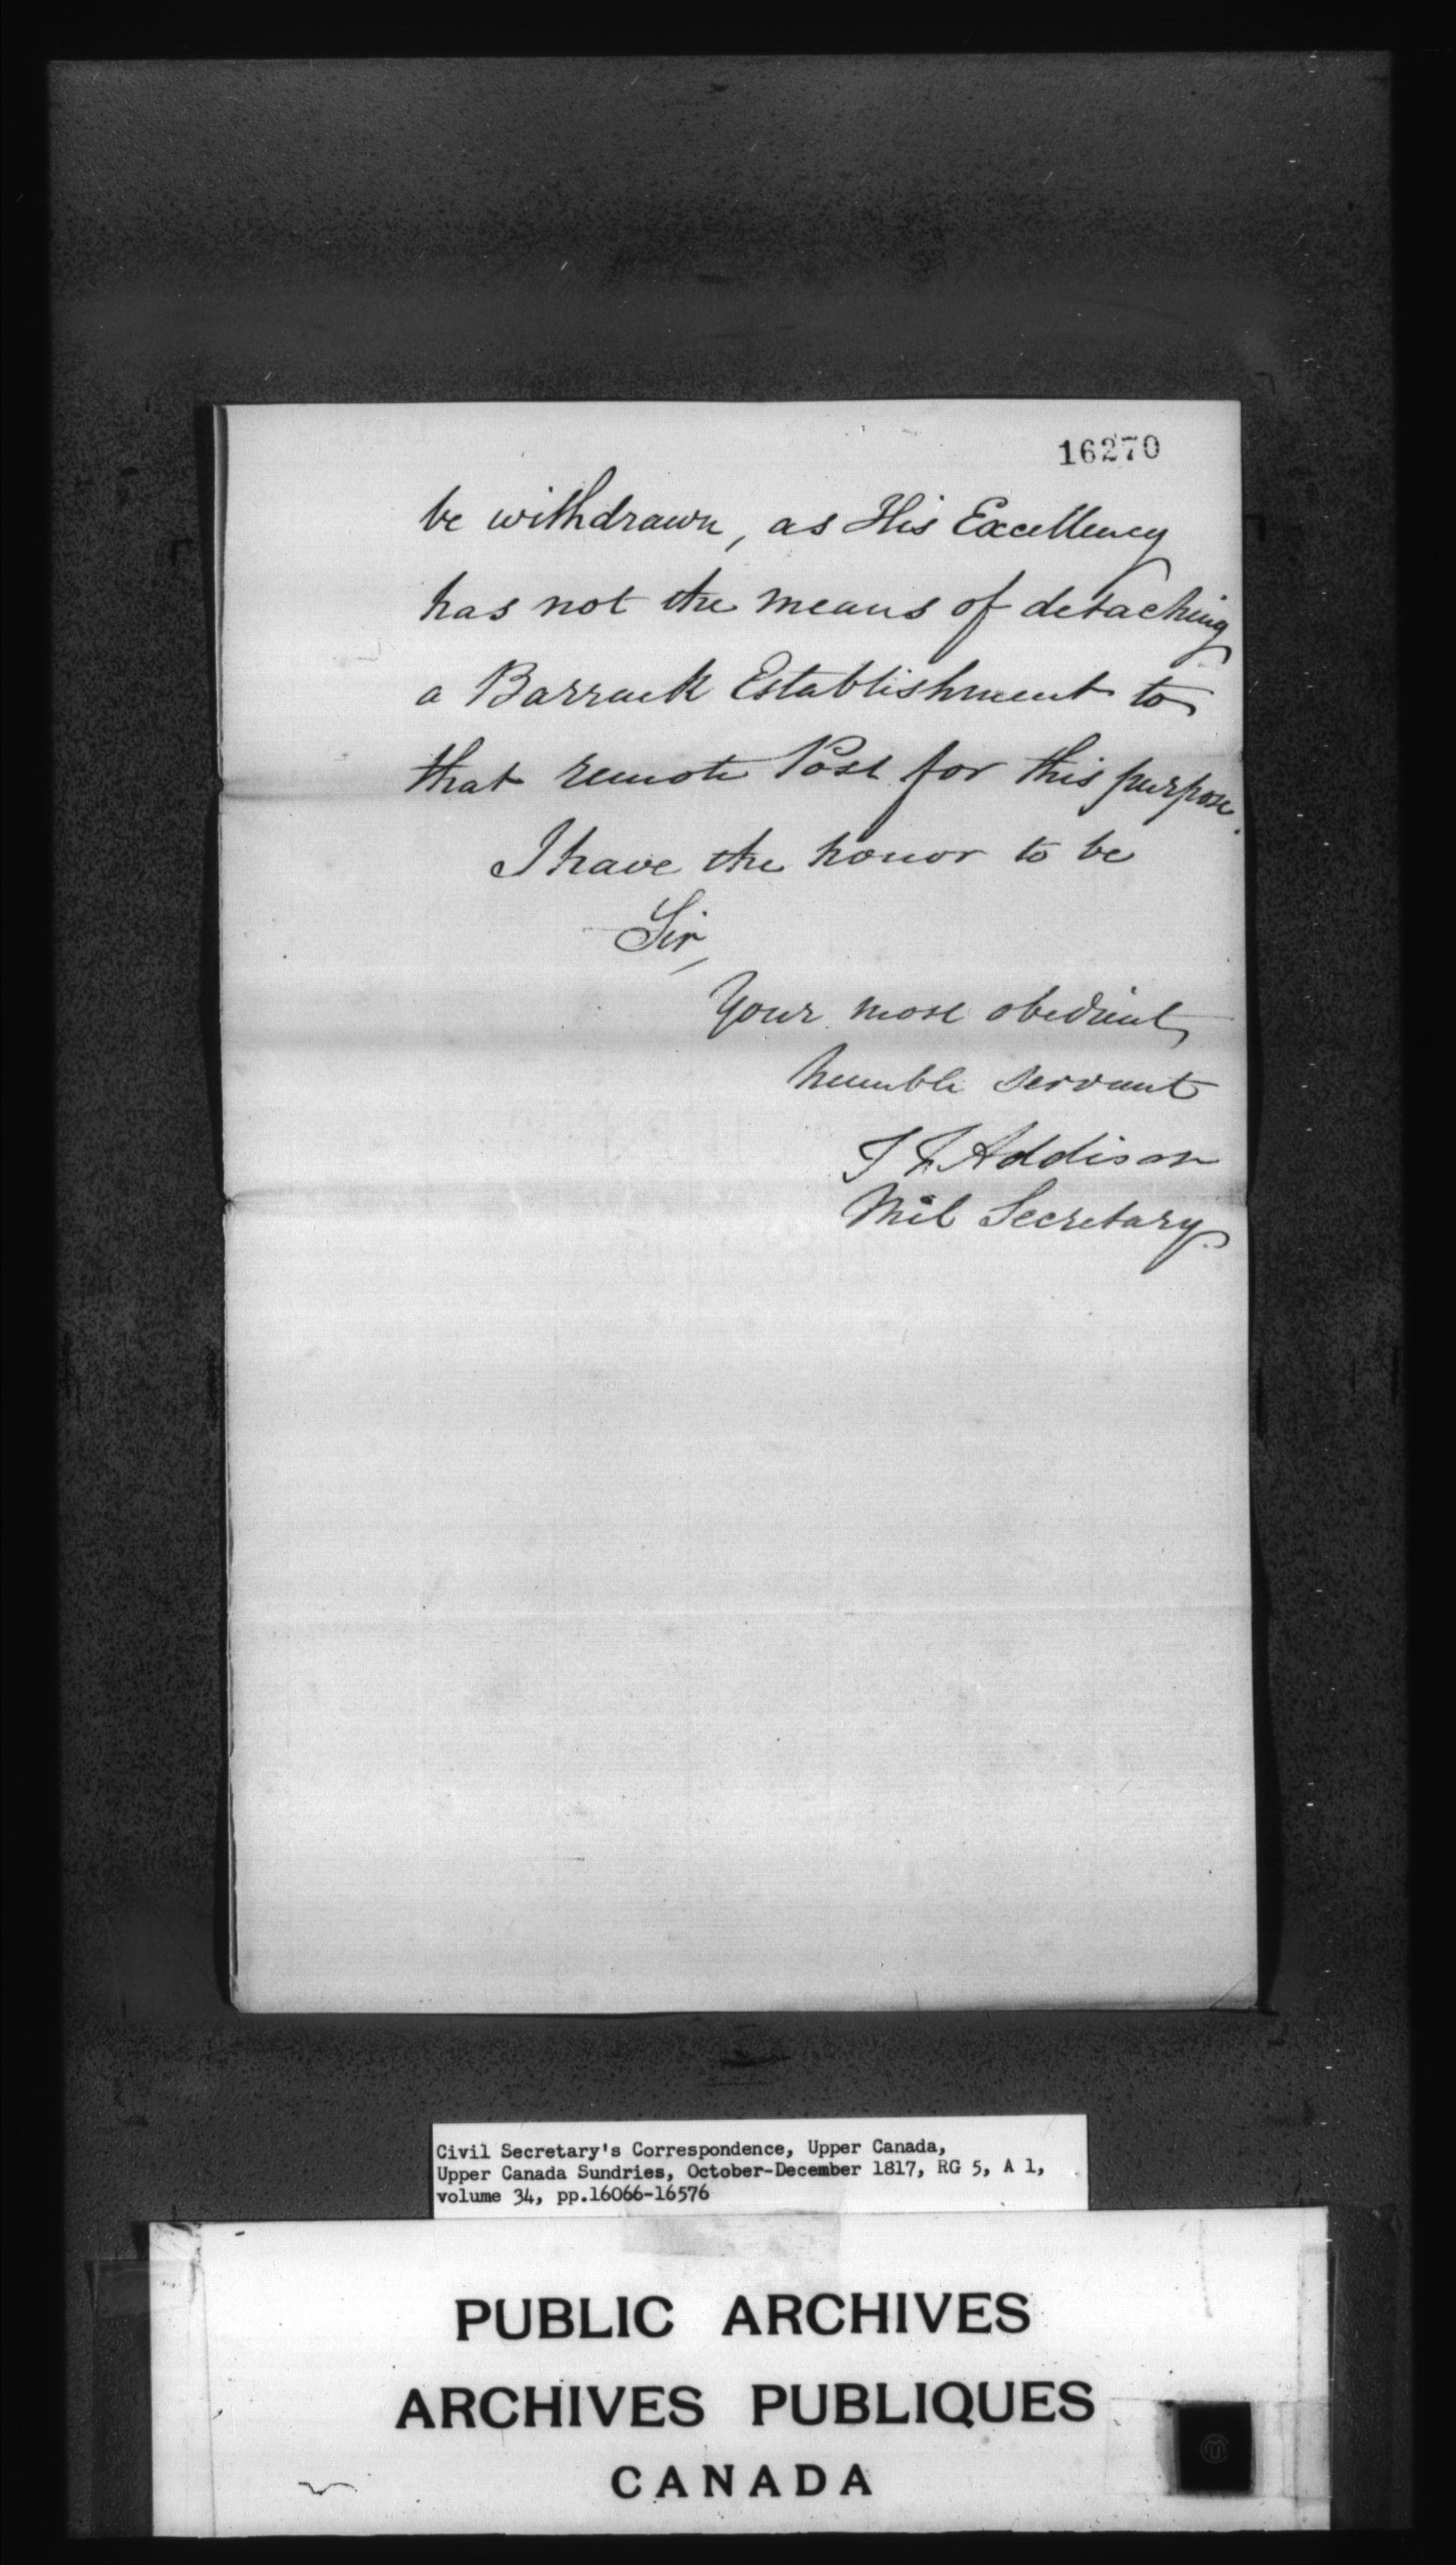 16270
be withdrawn, as His Excellency
has not the means of detaching
a Barrack Establishment to
that remote Post for this purpose.
I have the honor to be
Sir,
Your most obedient
humble servant
T F Addison
Mil Secretary.
Civil Secretary's Correspondence, Upper Canada,
Upper Canada Sundries, October-December 1817, RG 5, A 1,
volume 34, pp.16066-16576
PUBLIC ARCHIVES
ARCHIVES PUBLIQUES
CANADA